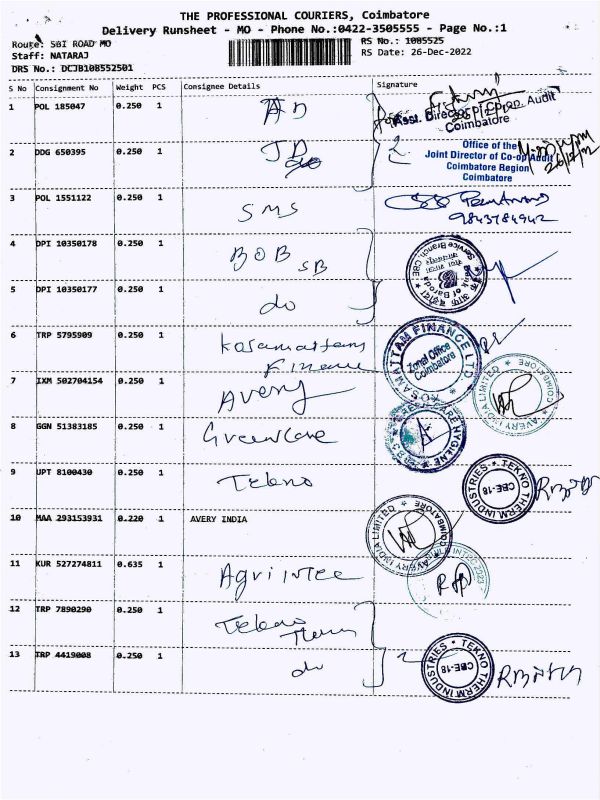 THE PROFESSIONAL COURIERS, Coimbatore
Delivery Runsheet - MO - Phone No.:0422-3505555 - Page No.:1
Route: SBI ROAD MO
RS No.: 1085525
Staff: NATARAJ
RS Date: 26-Dec-2022
DRS No.: DCJB108552501
S No Consignment No Weight PCS Consignee Details Signature
1 POL 185047 0.250 1 AD
Asst. Director of Co-op Audit
Coimbatore
2 DDG 650395 0.250 1 JD do
Office of the
Joint Director of Co-op Audit
Coimbatore Region
Coimbatore
3 POL 1551122 0.250 1 SMS
9843784942
4 DPI 10350178 0.250 1 BOB SB
Bank of Baroda
Service Branch, CBE
5 DPI 10350177 0.250 1 do
6 TRP 5795909 0.250 1 Kosamattam
Finance
KOSAMATTAM FINANCE LTD
Zonal Office
Coimbatore
7 IXM 502704154 0.250 1 Avery
AVERY INDIA LIMITED * COIMBATORE
8 GGN 51383185 0.250 1 Greencare
HYGIENE
9 UPT 8100430 0.250 1 Tekno
TEKNO THERM INDUSTRIES
CBE-18
10 MAA 293153931 0.220 1 AVERY INDIA
AVERY INDIA LIMITED * COIMBATORE
11 KUR 527274811 0.635 1 Agriintee
12 TRP 7890290 0.250 1 Tekno
Therm
13 TRP 4419008 0.250 1 do
TEKNO THERM INDUSTRIES
CBE-18